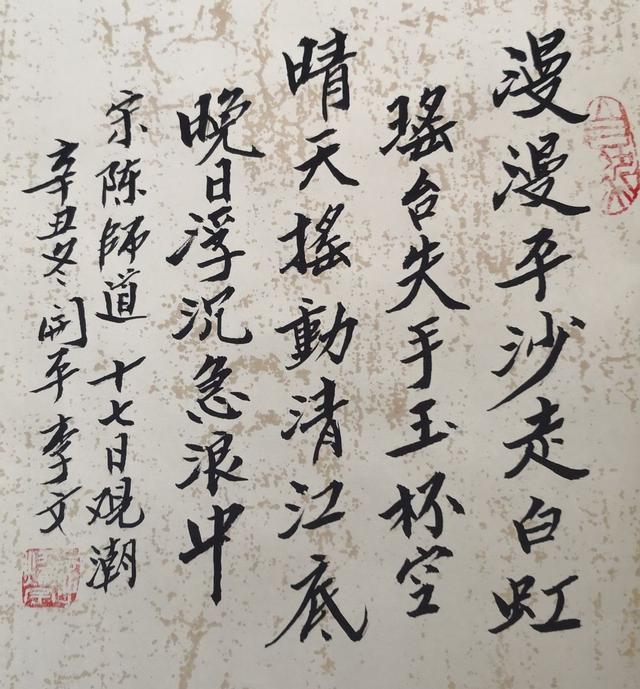 漫漫平沙走白虹
瑤台失手玉杯空
晴天搖動清江底
晚日浮沉急浪中
宋陈師道 十七日观潮
辛丑冬开平李文